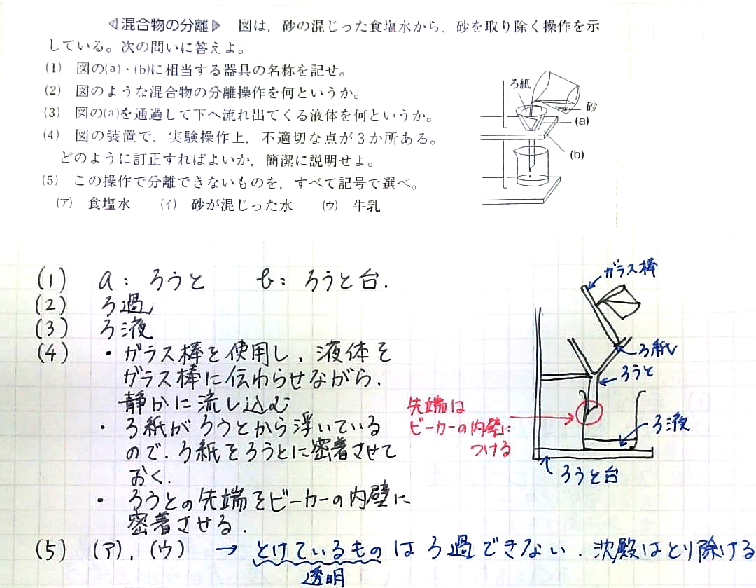 ◁混合物の分離▷ 図は，砂の混じった食塩水から，砂を取り除く操作を示
している。次の問いに答えよ。
(1) 図の(a)・(b)に相当する器具の名称を記せ。
(2) 図のような混合物の分離操作を何というか。
(3) 図の(a)を通過して下へ流れ出てくる液体を何というか。
(4) 図の装置で，実験操作上，不適切な点が3か所ある。
どのように訂正すればよいか，簡潔に説明せよ。
(5) この操作で分離できないものを，すべて記号で選べ。
(ア) 食塩水 (イ) 砂が混じった水 (ウ) 牛乳
ろ紙
砂
(a)
(b)
(1) a: ろうと b: ろうと台.
(2) ろ過
(3) ろ液
(4) ・ガラス棒を使用し、液体を
ガラス棒に伝わらせながら、
静かに流し込む
・ろ紙がろうとから浮いている
ので、ろ紙をろうとに密着させて
おく.
・ろうとの先端をビーカーの内壁に
密着させる.
(5) (ア), (ウ) → とけているものはろ過できない. 沈殿はとり除ける
透明
ガラス棒
ろ紙
ろうと
ろ液
ろうと台
先端は
ビーカーの内壁に
つける